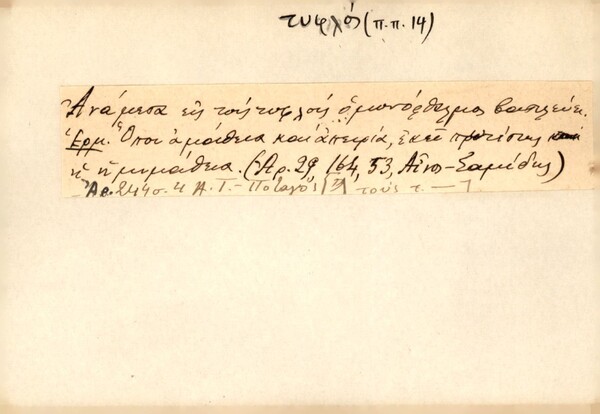 τυφλός (π.π. 14)
Ἀνάμεσα εἰς τοὺς τυφλοὺς ὁ μονόφθαλμος βασιλεύει.
Ἑρμ. Ὅπου ἀμάθεια καὶ ἀπειρία, ἐκεῖ πρωτίστης
ἡ ἡμιμάθεια. (Ἀρ. 29, 164, 53, Αἶνος-Σαμίδης)
Ἀρ. 244 σ. 4 Α. Γ. - Ποταγός τοὺς τ. —